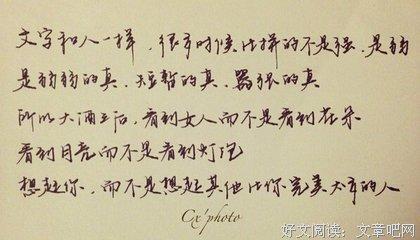 文字和人一样，很多时候比拼的不是强，是弱
是弱弱的真，短暂的真，嚣张的真
所以大酒之后，看到女人而不是看到花朵
看到月亮而不是看到灯泡
想起你，而不是想起其他比你完美太多的人
Cx'photo
好文阅读：文章吧网